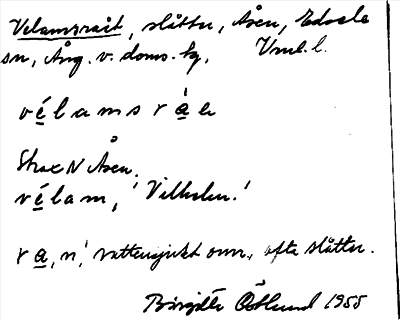 Velamsråit, slåtter, Åsen, Edsele
sn, Ång. v. doms. hg, Vml. l.
vélamsráe
Strax N Åsen.
vélam, 'Vilhelm.'
ra, n, vattensjukt omr., ofta slåtter.
Birgitta Östlund 1955